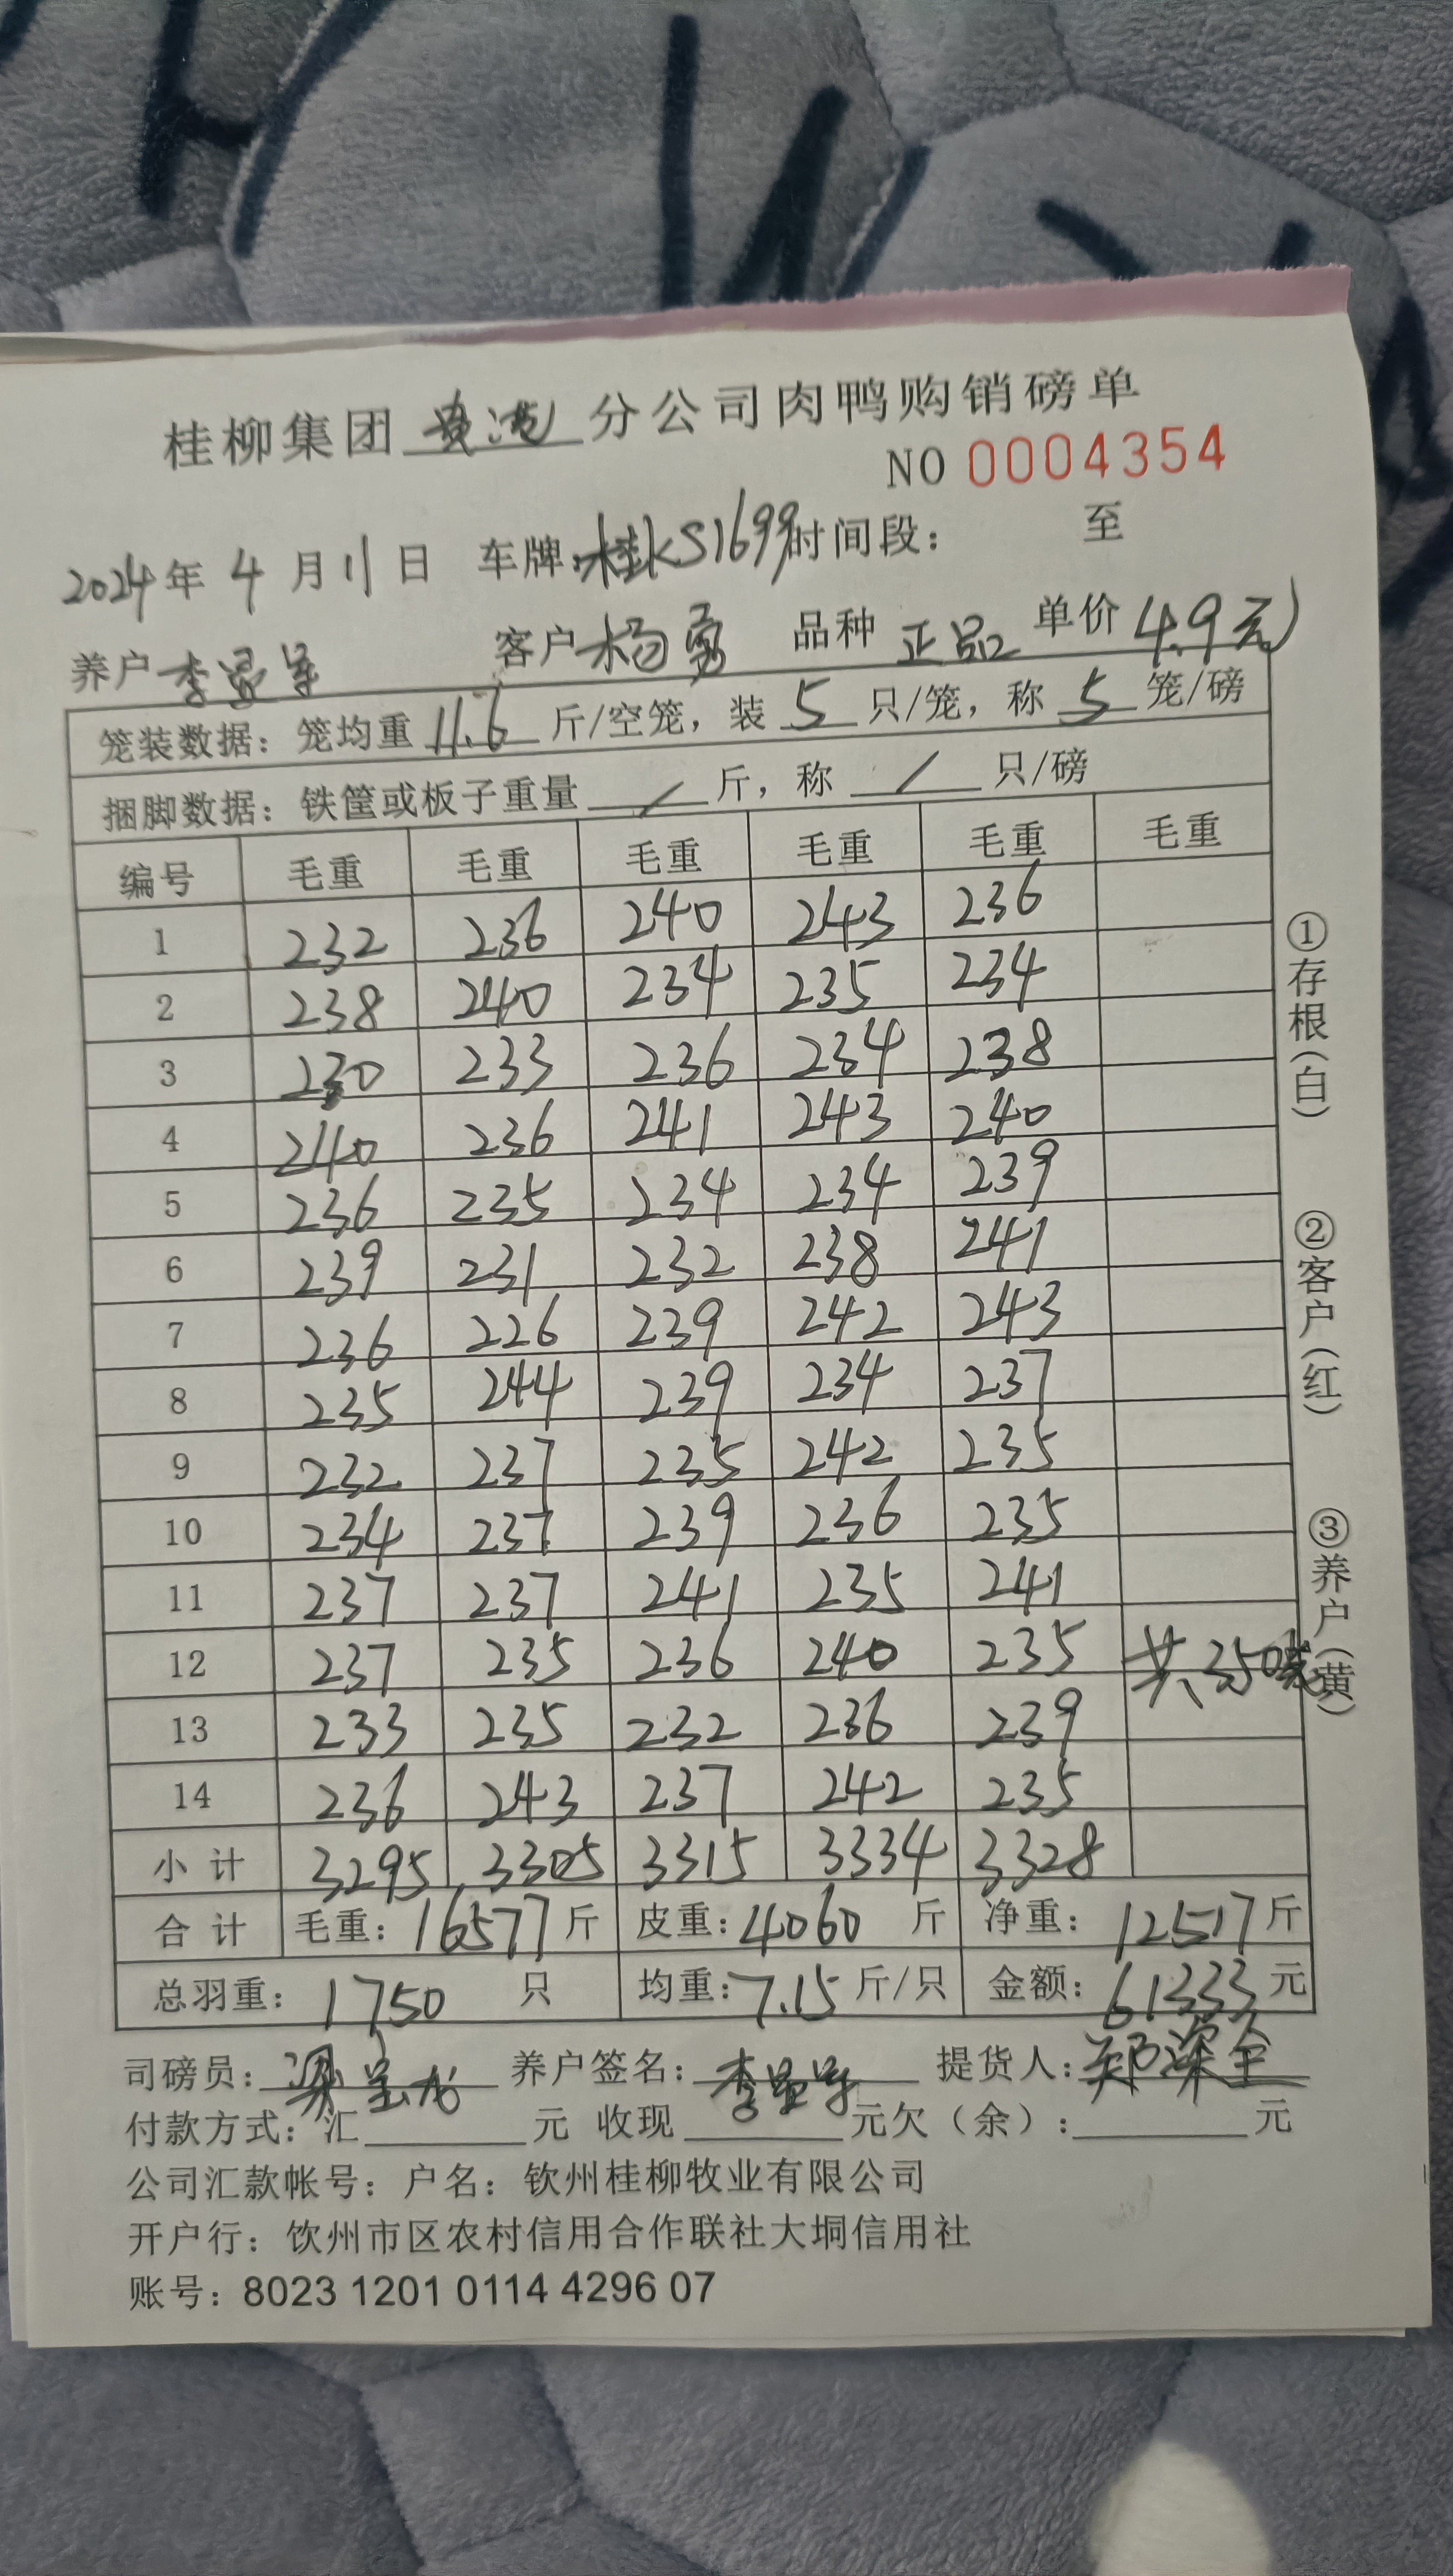 桂柳集团 分公司肉鸭购销磅单
NO 0004354
2024年 4 月 11 日 车牌:桂KS1699 时间段: 至
养户 李 客户 杨勇 品种 正品 单价 4.9元
笼装数据: 笼均重 11.6 斤/空笼, 装 5 只/笼, 称 5 笼/磅
捆脚数据: 铁筐或板子重量 / 斤, 称 / 只/磅
编号 毛重 毛重 毛重 毛重 毛重 毛重
1 232 236 240 243 236
2 238 240 234 235 234
3 230 233 236 234 238
4 240 236 241 243 240
5 236 235 234 234 239
6 239 231 232 238 241
7 236 226 239 242 243
8 235 244 239 234 237
9 232 237 235 242 235
10 234 237 239 236 235
11 237 237 241 235 241
12 237 235 236 240 235 共350
13 233 235 232 236 239
14 236 243 237 242 235
小计 3295 3305 3315 3334 3328
合计 毛重: 16577 斤 皮重: 4060 斤 净重: 12517 斤
总羽重: 1750 只 均重: 7.15 斤/只 金额: 61333 元
司磅员: 养户签名: 李 提货人: 郑深全
付款方式: 汇 元 收现 元欠(余): 元
公司汇款帐号: 户名: 钦州桂柳牧业有限公司
开户行: 钦州市区农村信用合作联社大垌信用社
账号: 8023 1201 0114 4296 07
①存根(白)
②客户(红)
③养户(黄)